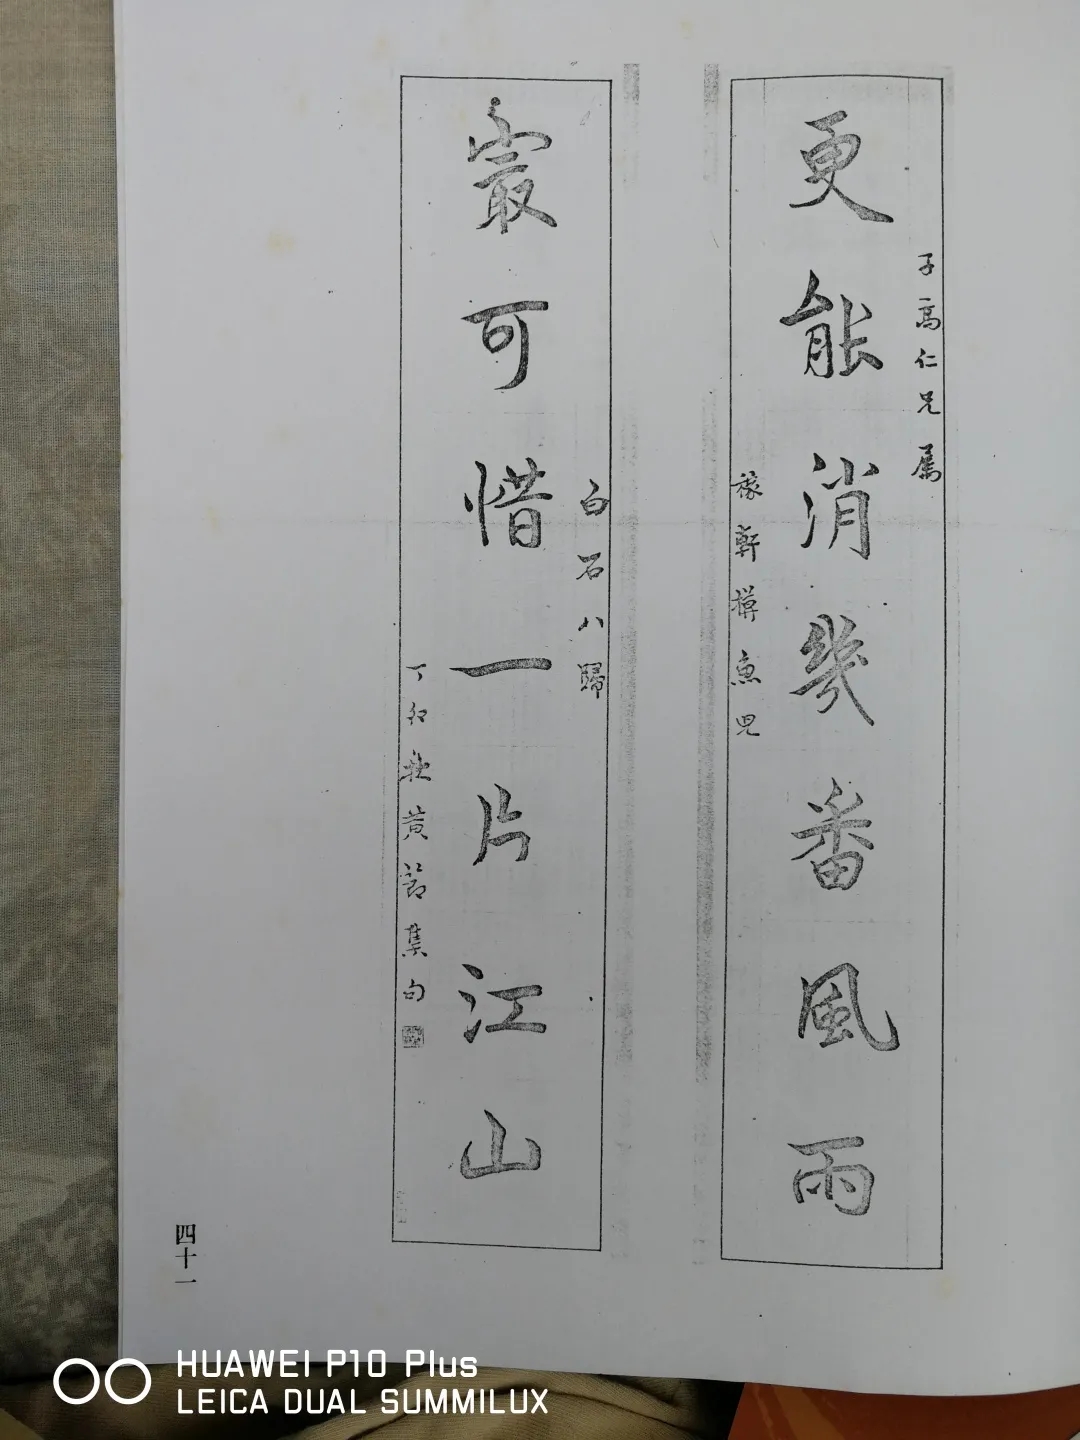 子高仁兄属
更能消幾番風雨
稼軒摸魚兒
白石八歸
寂可惜一片江山
丁卯秋黄節集句
四十一
HUAWEI P10 Plus
LEICA DUAL SUMMILUX